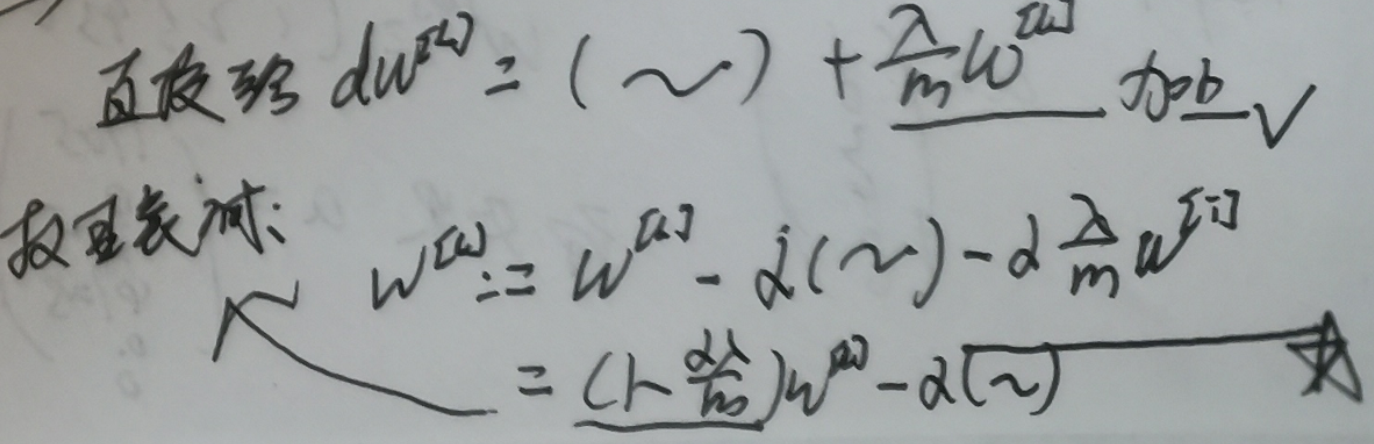 直接给 dw^[L] = (~) + λ/m w^[L] 加b √
权重衰减:
w^[L] := w^[L] - α(~) - α λ/m w^[i]
= (1 - αλ/m)w^[L] - α(~)